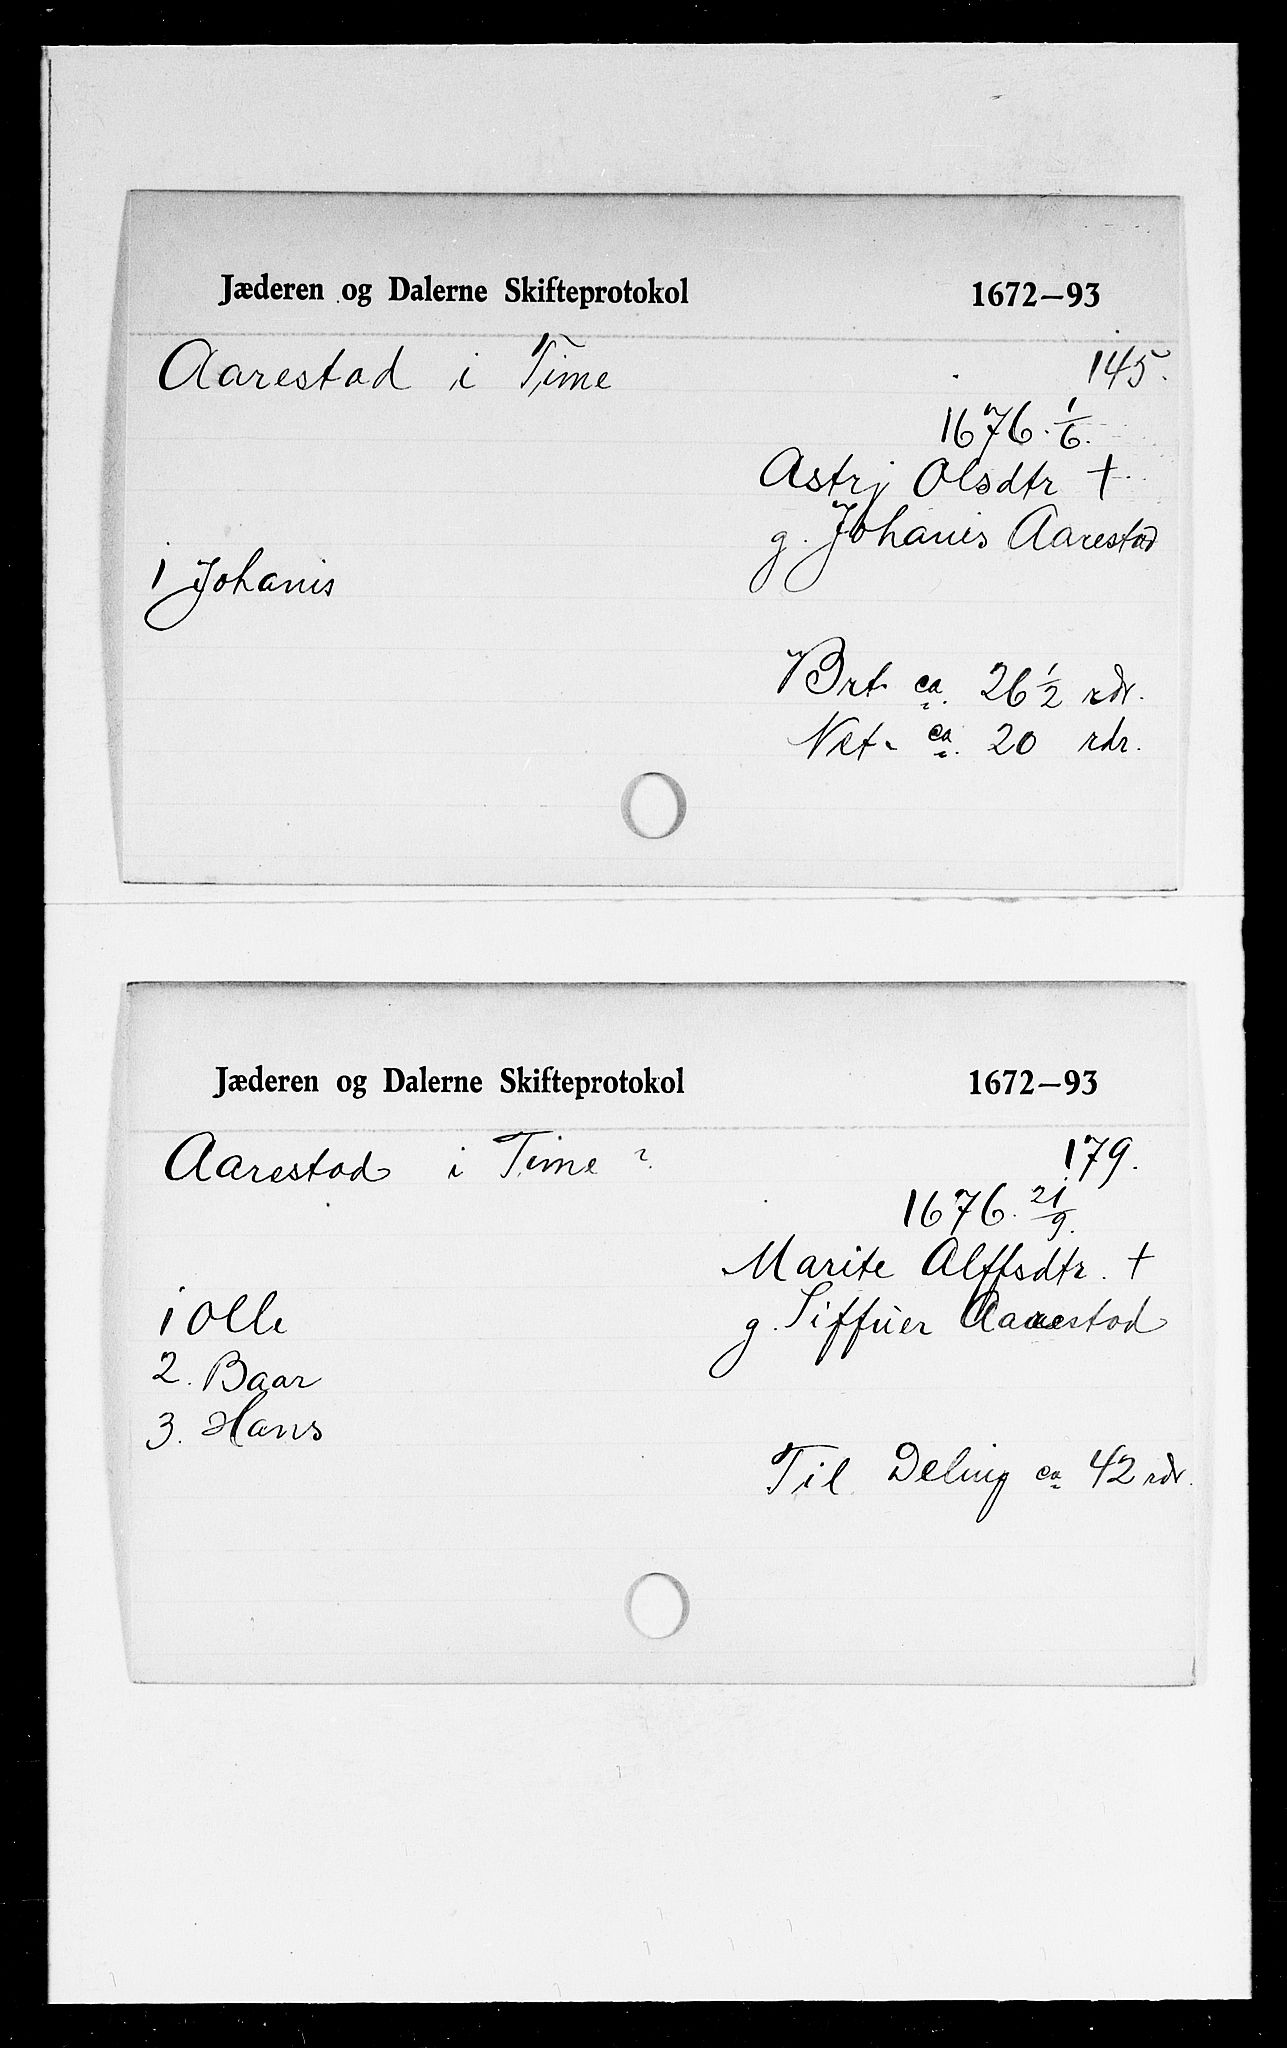 Jæderen og Dalerne Skifteprotokol 1672–93
Aarestad i Time 145.
1676. 1/6.
Astrj Olsdtr †
g. Johanis Aarestad
1 Johanis
Brt ca. 26 1/2 rdr.
Net. ca. 20 rdr.
Jæderen og Dalerne Skifteprotokol 1672–93
Aarestad i Time ?. 179.
1676. 21/9.
Marite Alffsdtr. †
1 Olle g. Siffuer Aarestad
2. Baar
3. Hans
Til Deling ca 42 rdr.